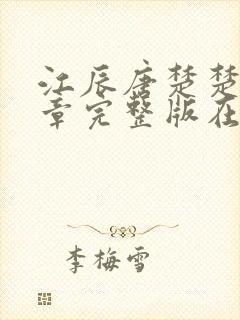 江辰唐楚楚
章完整版在
李梅雪